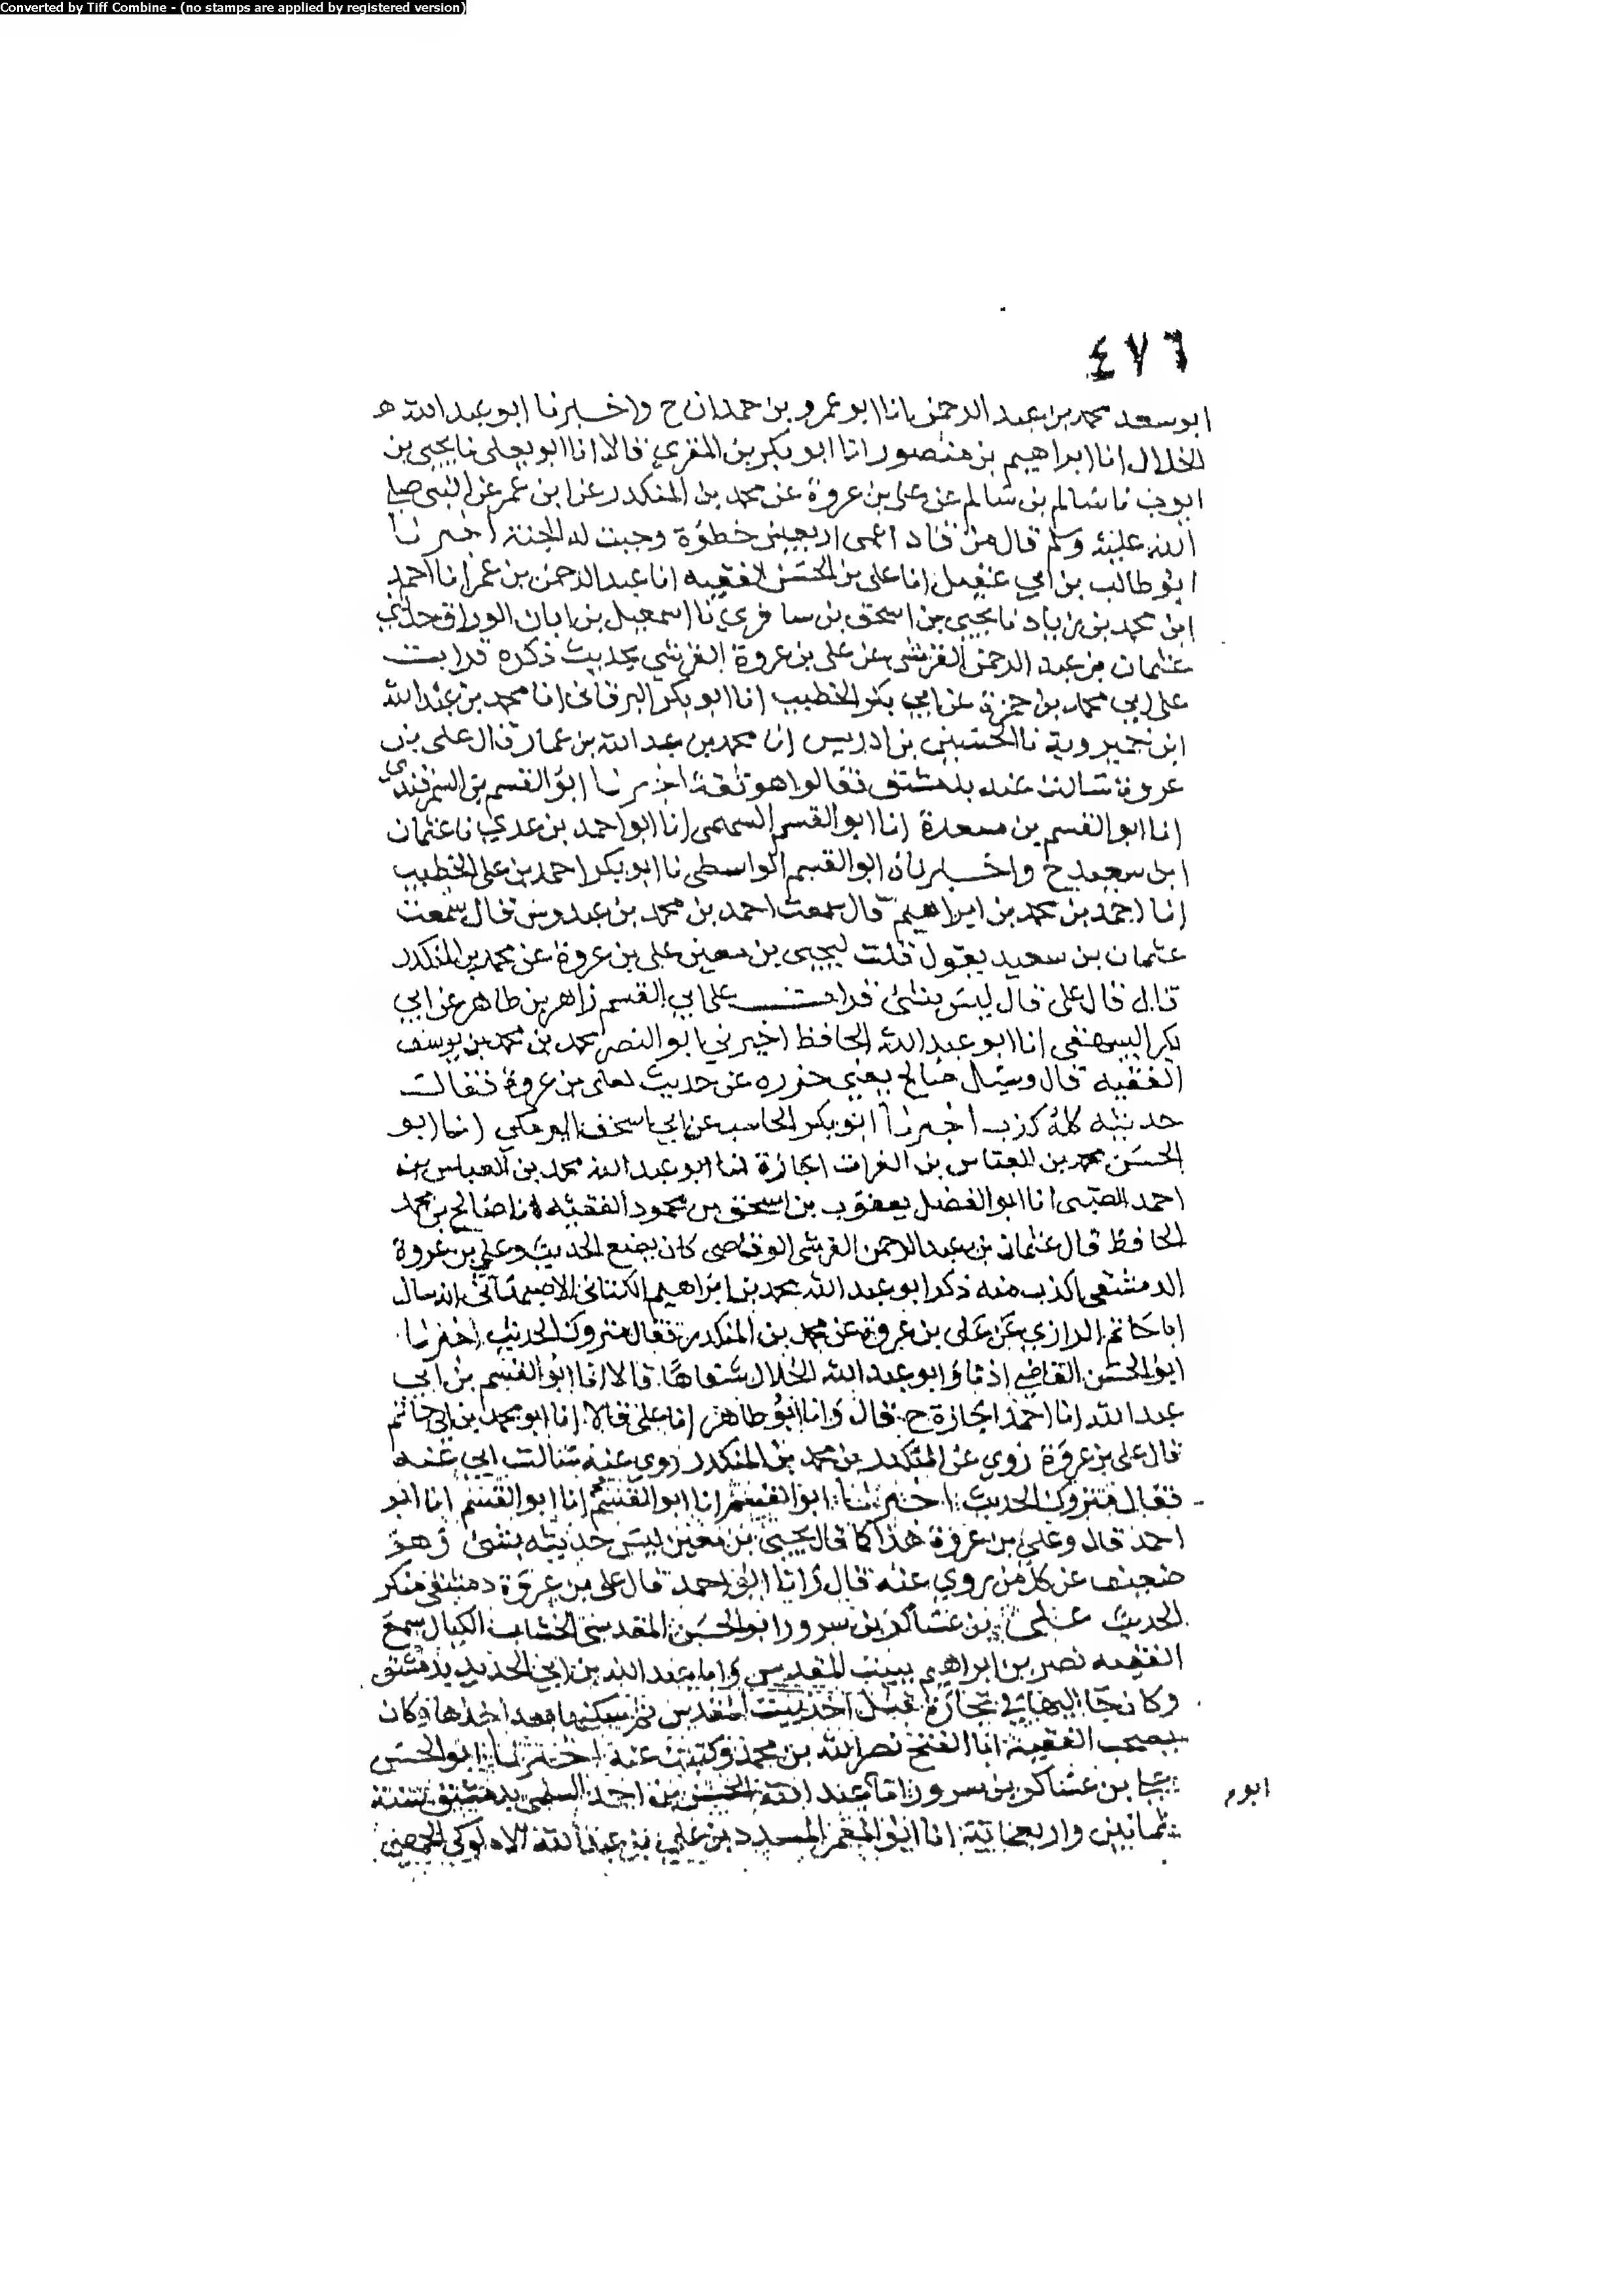 Converted by Tiff Combine - (no stamps are applied by registered version)
٤٧٦
ابو سعد محمد بن عبد الرحمن انا ابو عمرو بن حمدان ح واخبرنا ابو عبد الله
الخلال انا ابراهيم بن منصور انا ابو بكر بن المقري قالا انا ابو يعلى نا يحيى بن
ايوب نا سالم بن سالم عن علي بن عروة عن محمد بن المنكدر عن ابن عمر عن النبي صلى
الله عليه وسلم قال من قاد اعمى اربعين خطوة وجبت له الجنة اخبرنا
ابو طالب بن ابي عقيل انا علي بن الحسن الفقيه انا عبد الرحمن بن عمر انا احمد
ابن محمد بن زياد نا يحيى بن اسحق بن سافري نا اسمعيل بن ابان الوراق حدثني
عثمان بن عبد الرحمن القرشي عن علي بن عروة القرشي بحديث ذكره قرات
على ابي محمد بن حمزة عن ابي بكر الخطيب انا ابو بكر البرقاني انا محمد بن عبد الله
ابن خميروية نا الحسين بن ادريس انا محمد بن عبد الله بن عمار قال علي بن
عروة سالت عنه بدمشق فقالوا هو ثقة اخبرنا ابو القسم بن السمرقندي
انا ابو القسم بن مسعدة انا ابو القسم السهمي انا ابو احمد بن عدي نا عثمان
ابن سعيد ح واخبرنا ابو القسم الواسطي نا ابو بكر احمد بن علي الخطيب
انا احمد بن محمد بن ابراهيم قال سمعت احمد بن محمد بن عبدوس قال سمعت
عثمان بن سعيد يقول قلت ليحيى بن معين علي بن عروة عن محمد بن المنكدر
قال قال علي قال ليس بشئ قرات على ابي القسم زاهر بن طاهر عن ابي
بكر البيهقي انا ابو عبد الله الحافظ اخبرني ابو النصر محمد بن محمد بن يوسف
الفقيه قال وسئل صالح يعني جزره عن حديث لعلي بن عروة فقال
حديثه كله كذب اخبرنا ابو بكر الحاسب عن ابي اسحق البرمكي انا ابو
الحسن محمد بن العباس بن الفرات اجازة انا ابو عبد الله محمد بن العباس بن
احمد الضبي انا ابو الفضل يعقوب بن اسحق بن محمود الفقيه انا صالح بن محمد
الحافظ قال عثمان بن عبد الرحمن القرشي الوقاصي كان يضع الحديث وعلي بن عروة
الدمشقي اكذب منه ذكر ابو عبد الله محمد بن ابراهيم الكتاني الاصبهاني انه سال
ابا حاتم الرازي عن علي بن عروة عن محمد بن المنكدر فقال متروك الحديث اخبرنا
ابو الحسن القاضي اذنا وابو عبد الله الخلال شفاها قالا انا ابو القسم بن ابي
عبد الله انا احمد اجازة ح قال وانا ابو طاهر انا علي قالا انا ابو محمد بن ابي حاتم
قال علي بن عروة روي عن المنكدر بن محمد بن المنكدر روي عنه سالت ابي عنه
فقال متروك الحديث اخبرنا ابو القسم انا ابو القسم انا ابو القسم انا ابو
احمد قال وعلي بن عروة هذا كما قال يحيى بن معين ليس حديثه بشئ وهو
ضعيف عن كل من روي عنه قال وانا ابو احمد قال علي بن عروة دمشقي منكر
الحديث علي بن عساكر بن سرور ابو الحسن المقدسي الخشاب الكيال سمع
الفقيه نصر بن ابراهيم ببيت المقدس وابا عبد الله بن ابي الحديد بدمشق
وكان جا اليها في تجارة قبل اخذ بيت المقدس ثم سكنها بعد اخذها وكان
يصحب الفقيه ابا الفتح نصر الله بن محمد وكتبت عنه اخبرنا ابو الحسن
علي بن عساكر بن سرور انا عبد الله الحسن بن احمد السلمي بدمشق سنة
ثمانين واربعمائة انا ابو المعمر المسدد بن علي بن عبد الله الاملوكي الحمصي